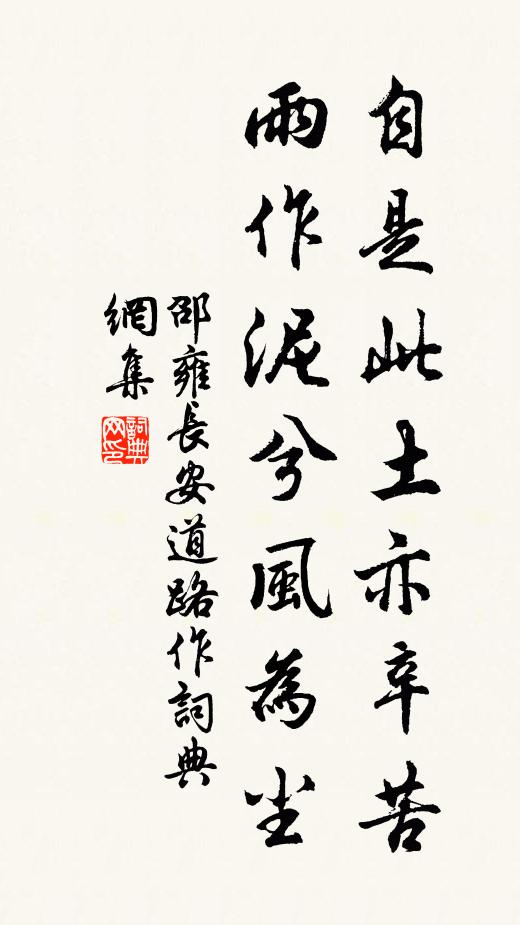 自是此土亦辛苦
雨作泥兮風為尘
邵雍長安道路作詞典
網集
詞典
网印